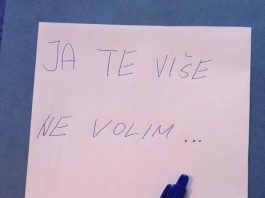 JA TE VIŠE
NE VOLIM...